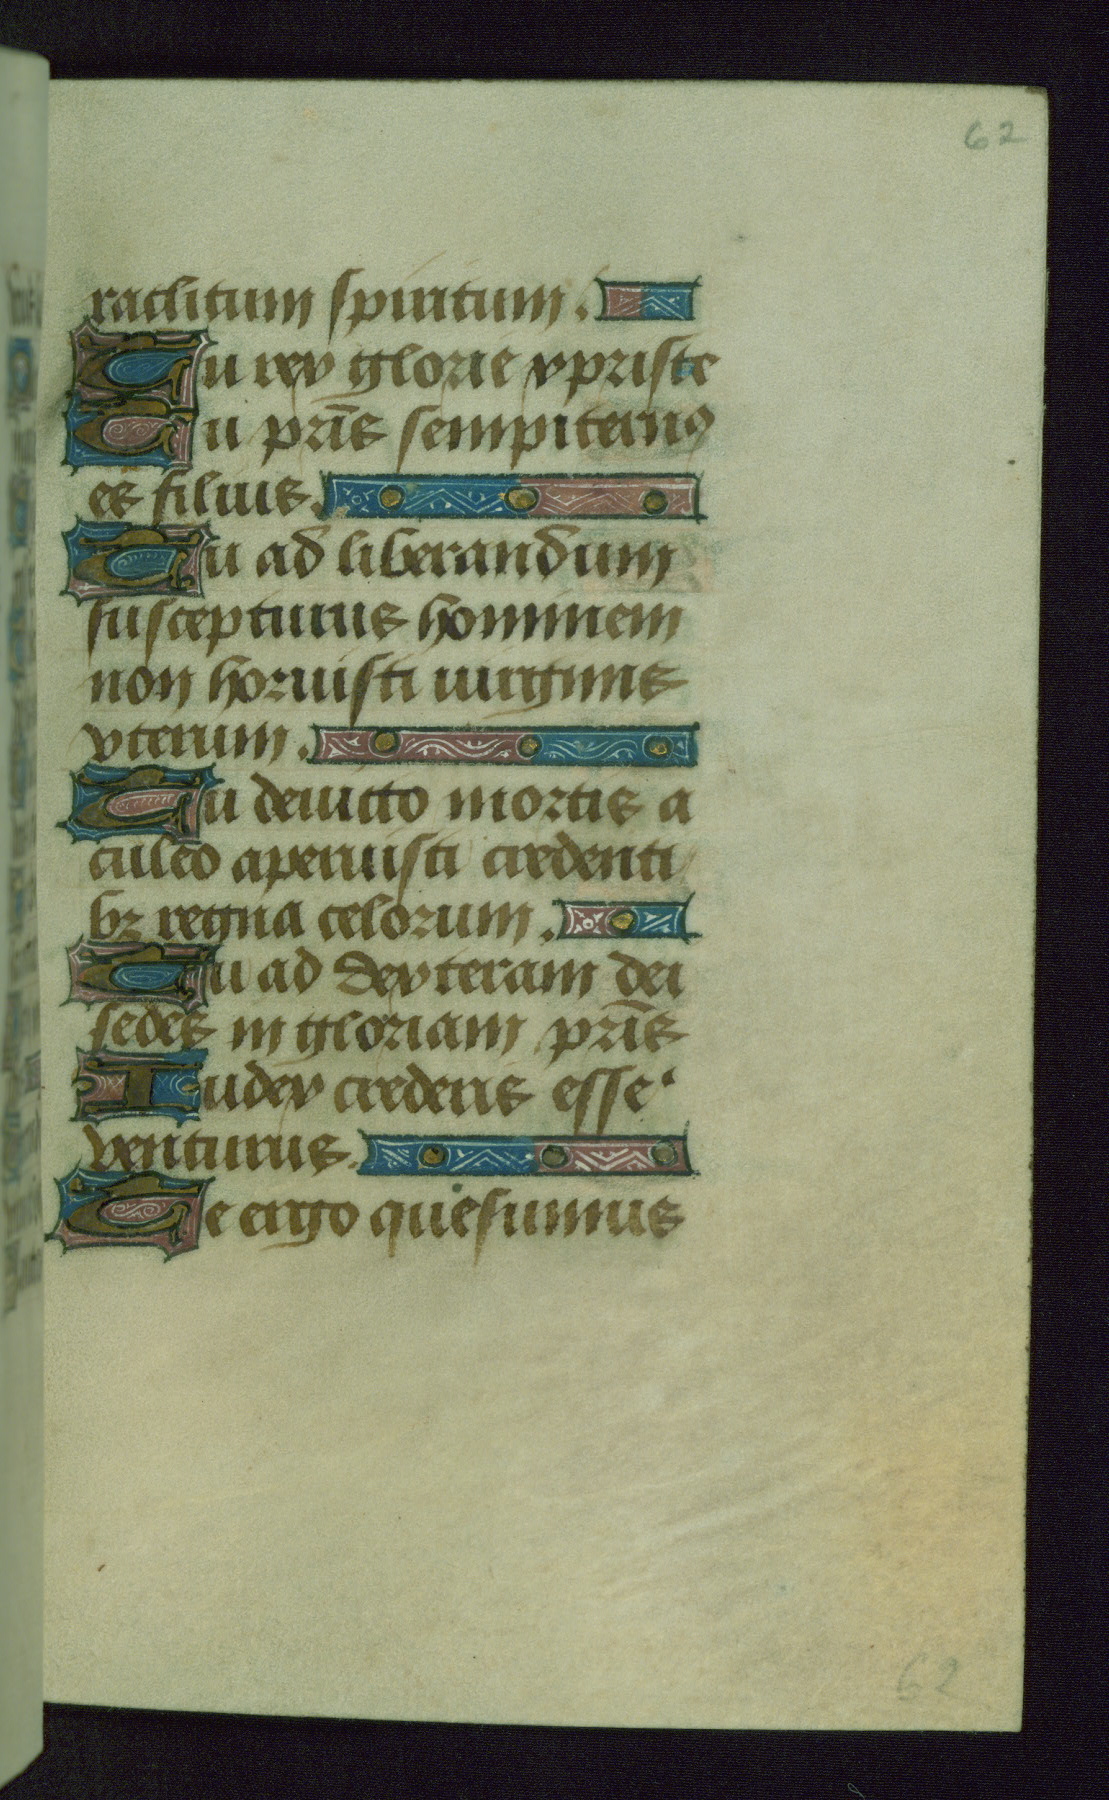 62
raclitum spiritum.
Tu rex glorie xpriste
Tu pr̄is sempiternꝰ
es filius.
Tu ad liberandum
suscepturus hominem
non horruisti uirginis
vterum.
Tu deuicto mortis a
culeo aperuisti credenti
bꝫ regna celorum.
Tu ad dexteram dei
sedes in gloriam pr̄is
Iudex crederis esse
venturus.
Te ergo quesumus
62